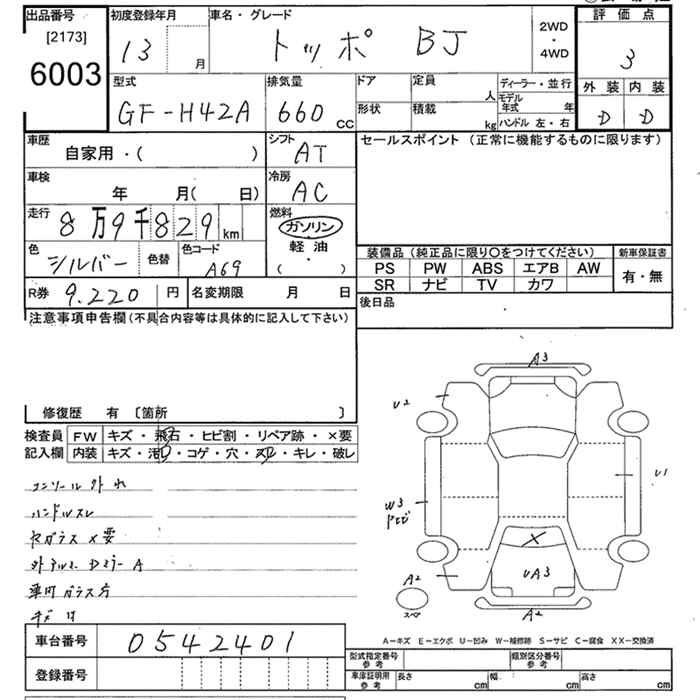 出品番号 初度登録年月 車名・グレード 2WD・4WD 評価点
[2173]
6003
13 月 トッポ BJ 3
型式 排気量 ドア 定員 人 ディーラー・並行 外装 内装
GF-H42A 660 CC 形状 積載 kg モデル年式 年 ハンドル 左・右 D D
車歴 自家用・( ) シフト AT セールスポイント (正常に機能するものに限ります)
車検 年 月( 日) 冷房 AC
走行 8万9千829 km 燃料 ガソリン
軽油
( ・ )
色 シルバー 色替 色コード A69
装備品(純正品に限り〇をつけてください) 新車保証書
PS PW ABS エアB AW 有・無
SR ナビ TV カワ
R券 9.220 円 名変期限 月 日 後日品
注意事項申告欄(不具合内容等は具体的に記入して下さい)
修復歴 有 〔箇所 〕
検査員 FW キズ・飛石・ヒビ割・リペア跡・×要
記入欄 内装 キズ・汚れ・コゲ・穴・スレ・キレ・破レ
コンソール外れ
ハンドルスレ
ドアミラー A
キズ
A3
U2
U1
W3
X
UA3
A2
スペア
A2
A-キズ E-エクボ U-凹み W-補修跡 S-サビ C-腐食 XX-交換済
車台番号 0542401
型式指定番号 参考 類別区分番号 参考
登録番号
車庫証明用 参考 長さ cm 幅 cm 高さ cm